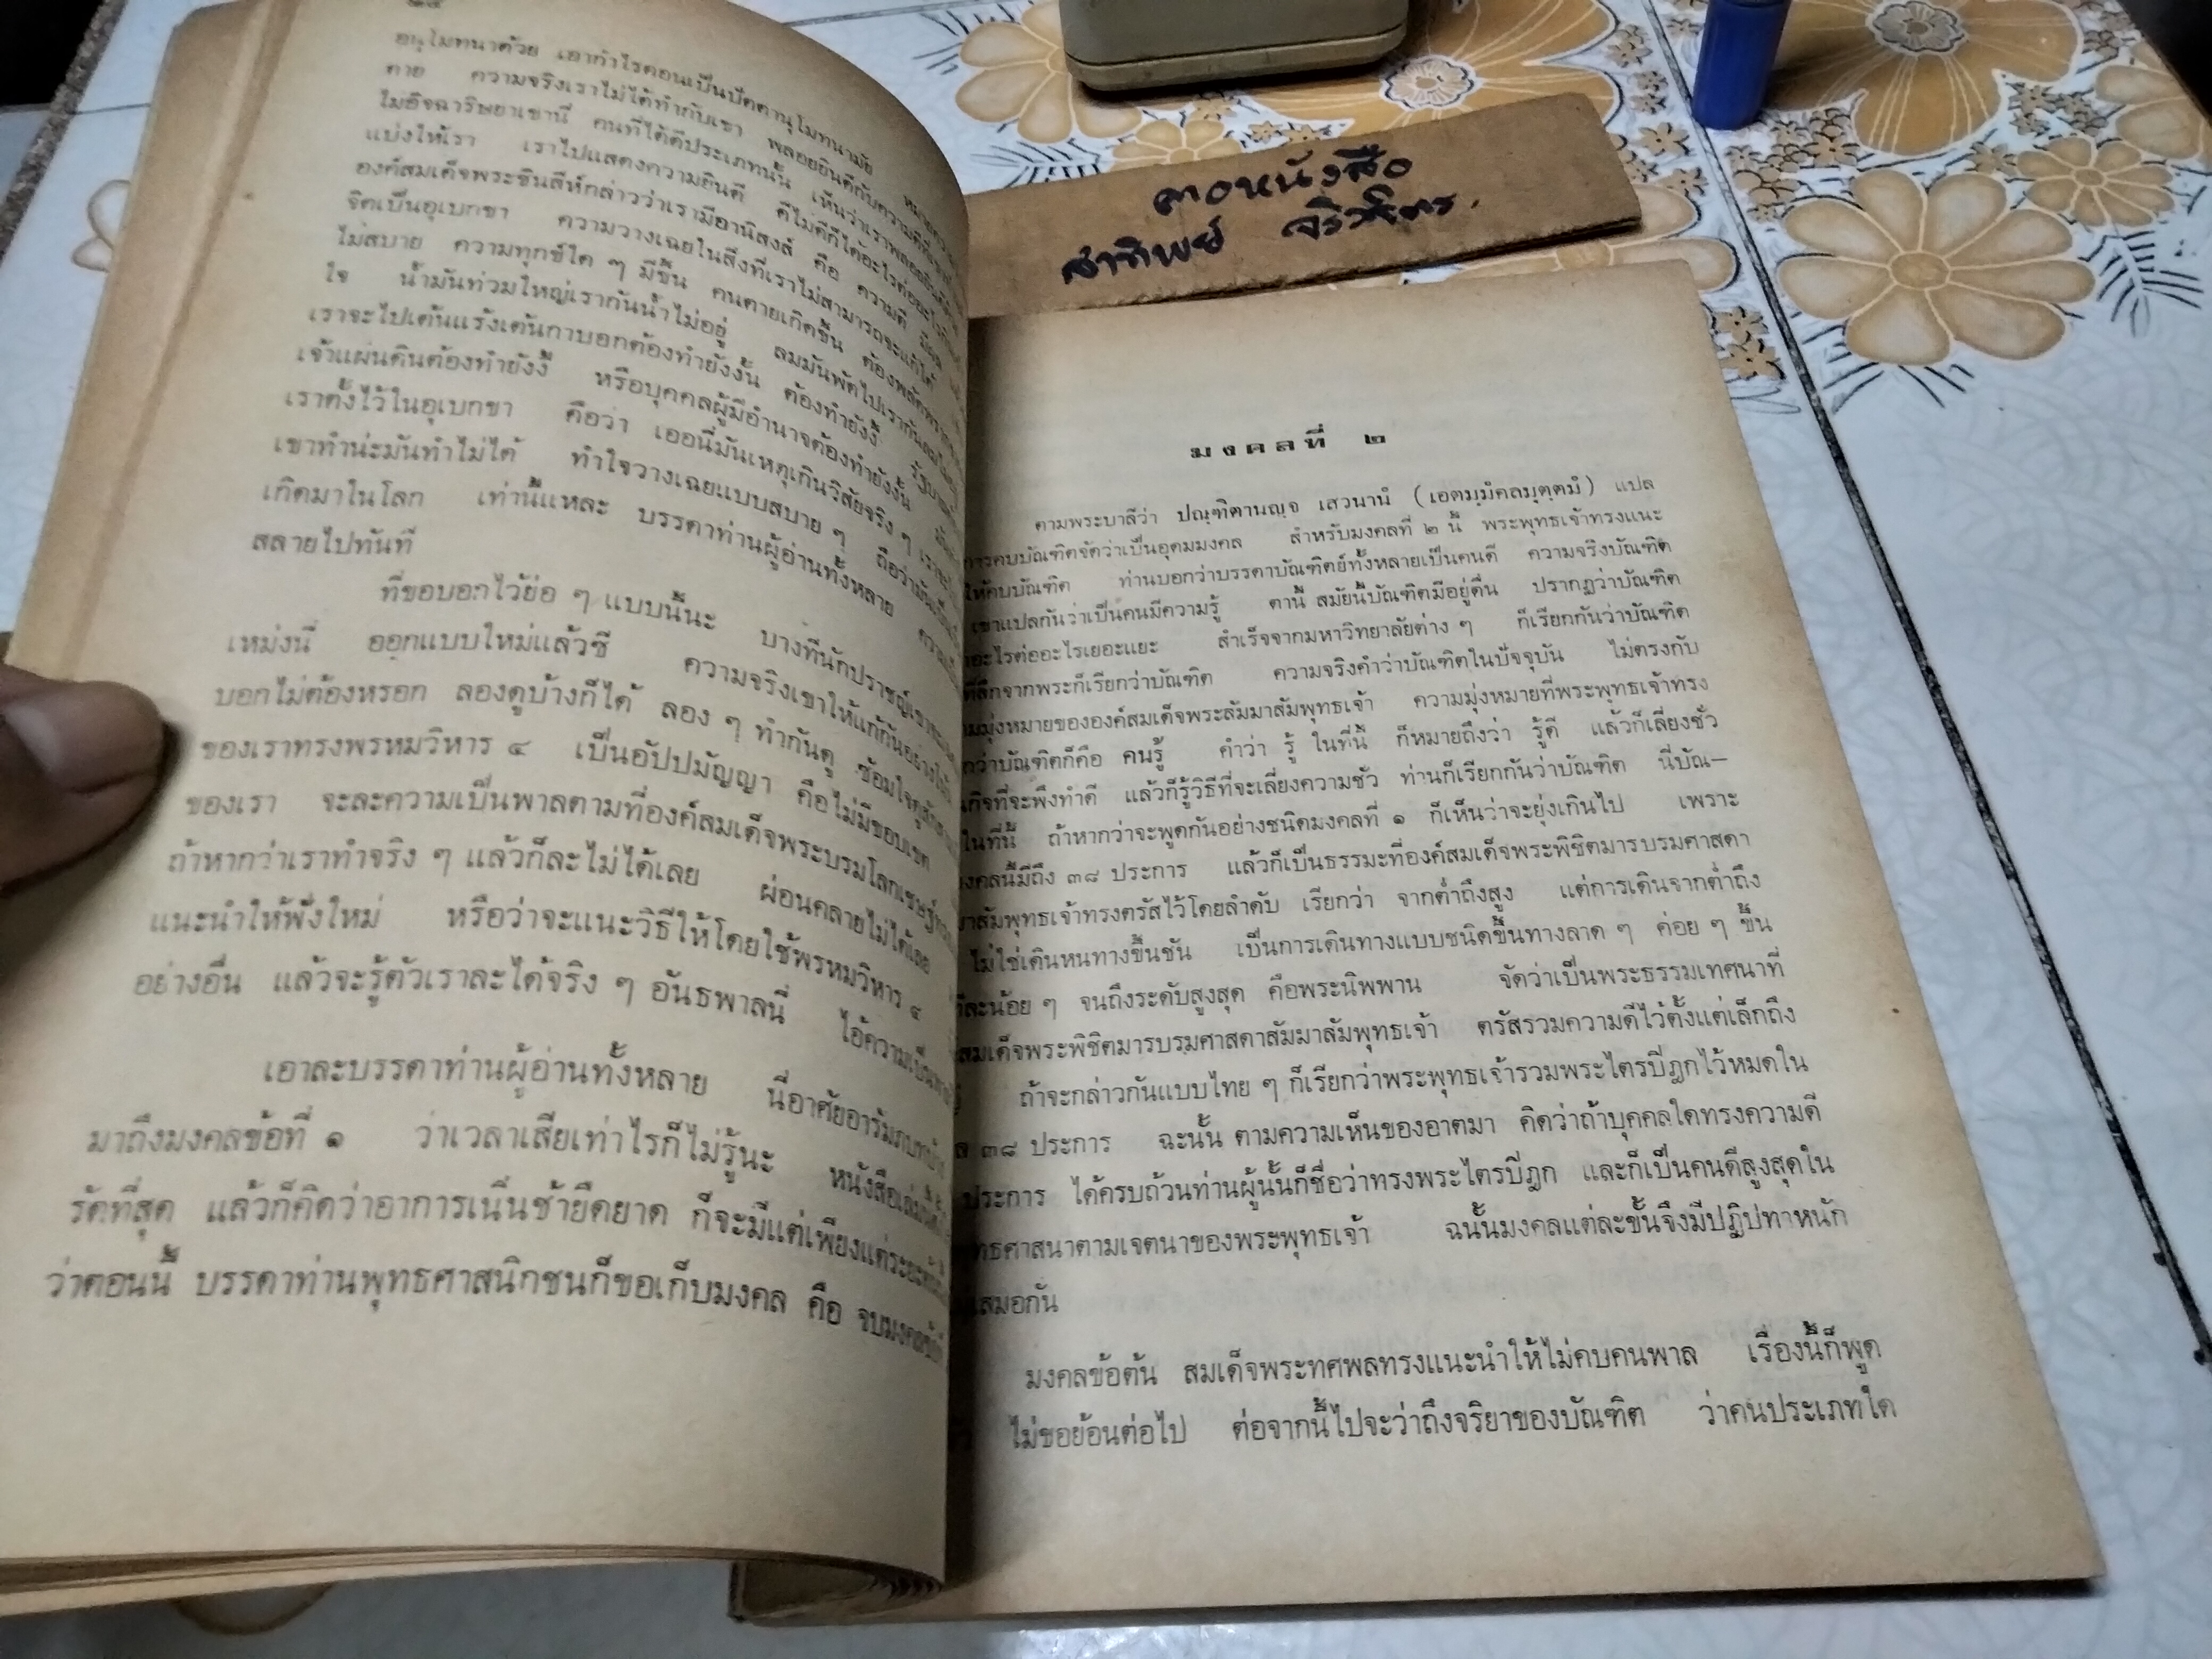 อนุโมทนาด้วย เอากำไรตอนเป็นปัตตานุโมทนามัย
ตาย ความจริงเราไม่ได้ทำกับเขา พลอยยินดีกับความดีที่
ไม่อิจฉาริษยาเขานี่ คนที่ได้ดีประเภทนั้น เห็นว่าเราพลอยยินดี
แบ่งให้เรา เราไปแสดงความยินดี ดีไม่ดีก็ได้อะไรต่ออะไร
องค์สมเด็จพระชินสีห์กล่าวว่าเรามีอานิสงส์ คือ ความดี
จิตเป็นอุเบกขา ความวางเฉยในสิ่งที่เราไม่สามารถจะแก้ได้
ไม่สบาย ความทุกข์ใด ๆ มีขึ้น คนตายเกิดขึ้น ต้องพลัดพราก
ใจ น้ำมันท่วมใหญ่เรากันน้ำไม่อยู่ ลมมันพัดไปเรากันลมไม่
เราจะไปเต้นแร้งเต้นกาบอกต้องทำยังงั้น ต้องทำยังงี้
เจ้าแผ่นดินต้องทำยังงี้ หรือบุคคลผู้มีอำนาจต้องทำยังงั้น
เราตั้งไว้ในอุเบกขา คือว่า เออนี่มันเหตุเกินวิสัยจริง ๆ
เขาทำน่ะมันทำไม่ได้ ทำใจวางเฉยแบบสบาย ๆ ถือว่ามันเป็น
เกิดมาในโลก เท่านี้แหละ บรรดาท่านผู้อ่านทั้งหลาย
สลายไปทันที
ที่ขอบอกไว้ย่อ ๆ แบบนี้นะ บางทีนักปราชญ์
เหม่งนี่ ออกแบบใหม่แล้วซี ความจริงเขาให้แก้กันอย่าง
บอกไม่ต้องหรอก ลองดูบ้างก็ได้ ลอง ๆ ทำกันดู ซ้อมใจ
ของเราทรงพรหมวิหาร ๔ เป็นอัปปมัญญา คือไม่มีขอบเขต
ของเรา จะละความเป็นพาลตามที่องค์สมเด็จพระบรมโลกเชษฐ์
ถ้าหากว่าเราทำจริง ๆ แล้วก็ละไม่ได้เลย ผ่อนคลายไม่ได้เลย
แนะนำให้ฟังใหม่ หรือว่าจะแนะวิธีให้โดยใช้พรหมวิหาร ๔
อย่างอื่น แล้วจะรู้ตัวเราละได้จริง ๆ อันธพาลนี่ ไอ้ความเป็น
เอาละบรรดาท่านผู้อ่านทั้งหลาย นี่อาศัยอารัมภบท
มาถึงมงคลข้อที่ ๑ ว่าเวลาเสียเท่าไรก็ไม่รู้นะ หนังสือเล่มนี้
รัดที่สุด แล้วก็คิดว่าอาการเนิ่นช้ายืดยาด ก็จะมีแต่เพียงแต่ระยะ
ว่าตอนนี้ บรรดาท่านพุทธศาสนิกชนก็ขอเก็บมงคล คือ จบมงคล
ลาดหนังสือ
สาทิพย์ จริวจิตร.
มงคลที่ ๒
ตามพระบาลีว่า ปณฺฑิตานญฺจ เสวนานํ (เอตมฺมํคลมุตฺตมํ) แปล
การคบบัณฑิตจัดว่าเป็นอุดมมงคล สำหรับมงคลที่ ๒ นี้ พระพุทธเจ้าทรงแนะ
ให้คบบัณฑิต ท่านบอกว่าบรรดาบัณฑิตย์ทั้งหลายเป็นคนดี ความจริงบัณฑิต
เขาแปลกันว่าเป็นคนมีความรู้ ตานี้ สมัยนี้บัณฑิตมีอยู่ดื่น ปรากฏว่าบัณฑิต
อะไรต่ออะไรเยอะแยะ สำเร็จจากมหาวิทยาลัยต่าง ๆ ก็เรียกกันว่าบัณฑิต
ที่สึกจากพระก็เรียกว่าบัณฑิต ความจริงคำว่าบัณฑิตในปัจจุบัน ไม่ตรงกับ
มุ่งหมายขององค์สมเด็จพระสัมมาสัมพุทธเจ้า ความมุ่งหมายที่พระพุทธเจ้าทรง
ว่าบัณฑิตก็คือ คนรู้ คำว่า รู้ ในที่นี้ ก็หมายถึงว่า รู้ดี แล้วก็เลี่ยงชั่ว
กิจที่จะพึงทำดี แล้วก็รู้วิธีที่จะเลี่ยงความชั่ว ท่านก็เรียกกันว่าบัณฑิต นี่บัณ—
ในที่นี้ ถ้าหากว่าจะพูดกันอย่างชนิดมงคลที่ ๑ ก็เห็นว่าจะยุ่งเกินไป เพราะ
มงคลนี้มีถึง ๓๘ ประการ แล้วก็เป็นธรรมะที่องค์สมเด็จพระพิชิตมารบรมศาสดา
สัมพุทธเจ้าทรงตรัสไว้โดยลำดับ เรียกว่า จากต่ำถึงสูง แต่การเดินจากต่ำถึง
ไม่ใช่เดินหนทางขึ้นชัน เป็นการเดินทางแบบชนิดขึ้นทางลาด ๆ ค่อย ๆ ขึ้น
ทีละน้อย ๆ จนถึงระดับสูงสุด คือพระนิพพาน จัดว่าเป็นพระธรรมเทศนาที่
สมเด็จพระพิชิตมารบรมศาสดาสัมมาสัมพุทธเจ้า ตรัสรวมความดีไว้ตั้งแต่เล็กถึง
ถ้าจะกล่าวกันแบบไทย ๆ ก็เรียกว่าพระพุทธเจ้ารวมพระไตรปิฎกไว้หมดใน
๓๘ ประการ ฉะนั้น ตามความเห็นของอาตมา คิดว่าถ้าบุคคลใดทรงความดี
ประการ ได้ครบถ้วนท่านผู้นั้นก็ชื่อว่าทรงพระไตรปิฎก และก็เป็นคนดีสูงสุดใน
พุทธศาสนาตามเจตนาของพระพุทธเจ้า ฉนั้นมงคลแต่ละขั้นจึงมีปฏิปทาหนัก
เสมอกัน
มงคลข้อต้น สมเด็จพระทศพลทรงแนะนำให้ไม่คบคนพาล เรื่องนี้ก็พูด
ไม่ขอย้อนต่อไป ต่อจากนี้ไปจะว่าถึงจริยาของบัณฑิต ว่าคนประเภทใด